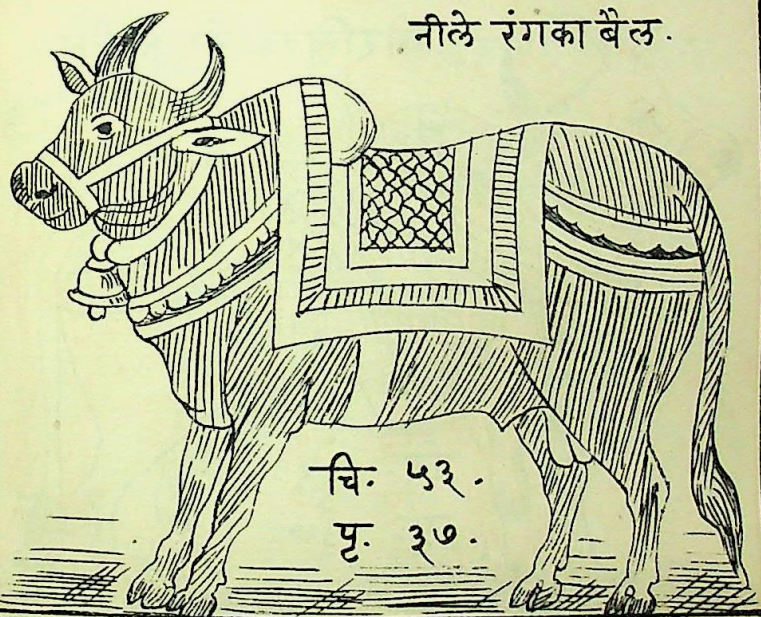 नीले रंगका बैल.
चि. ५३.
पृ. ३७.